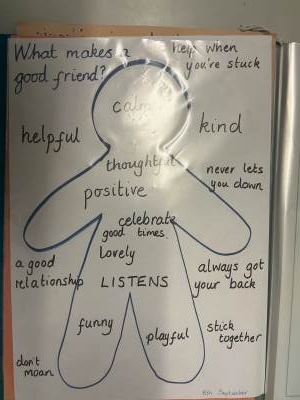 What makes a
good friend?
help when
you're stuck
calm
helpful
kind
thoughtful
never lets
you down
positive
celebrate
good times
Lovely
a good
relationship
LISTENS
always got
your back
funny
playful
stick
together
don't
moan
September